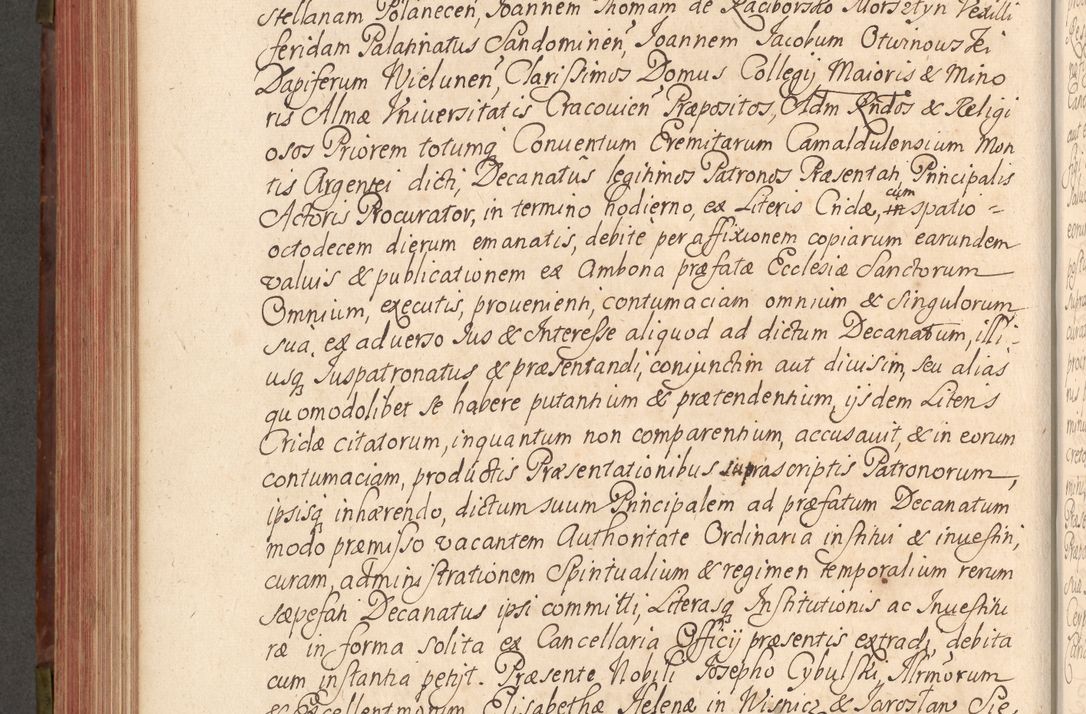 stellanam Polanecen, Joannem Thomam de Raciborsko Morsztyn Vexilli
feridam Palatinatus Sandominen, Joannem Jacobum Otwinowski
Dapiferum Wielunen, Clarissimos Domus Collegij Maioris & Mino
ris Almæ Vniuersitatis Cracouien Præpositos, Adm Rndos & Religi
osos Priorem totumq Conuentum Eremitarum Camaldulensium Mon
tis Argentei dicti, Decanatus legitimos Patronos Præsentati, Principalis
Actoris Procurator, in termino hodierno, ex Literis Cridæ, cum spatio =
octodecem dierum emanatis, debite per affixionem copiarum earundem
valuis & publicationem ex Ambona præfatæ Ecclesiæ Sanctorum
Omnium, executis, prouenienti, contumaciam omnium & singulorum
sua, ex aduerso Jus & Interesse aliquod ad dictum Decanatum, illi-
usq Juspatronatus & præsentandi, coniunctim aut diuisim, seu alias
quomodolibet se habere putantium & prætendentium, ijsdem Literis
Cridæ citatorum, inquantum non comparentium, accusauit, & in eorum
contumaciam, productis Præsentationibus suprascriptis Patronorum,
ipsisq inhærendo, dictum suum Principalem ad præfatum Decanatum
modo præmisso vacantem Authoritate Ordinaria institui & inuestiri,
curam, administrationem Spiritualium & regimen temporalium rerum
sæpefati Decanatus ipsi committi, Literasq Institutionis ac Inuestitu
ræ in forma solita ex Cancellaria Officij præsentis extradi, debita
cum instantia petijt. Præsente Nobili Josepho Cybulski, Illrmorum
& Excellentmorum Elisabethæ Helenæ in Wisnicz & Jaroslaw Sie